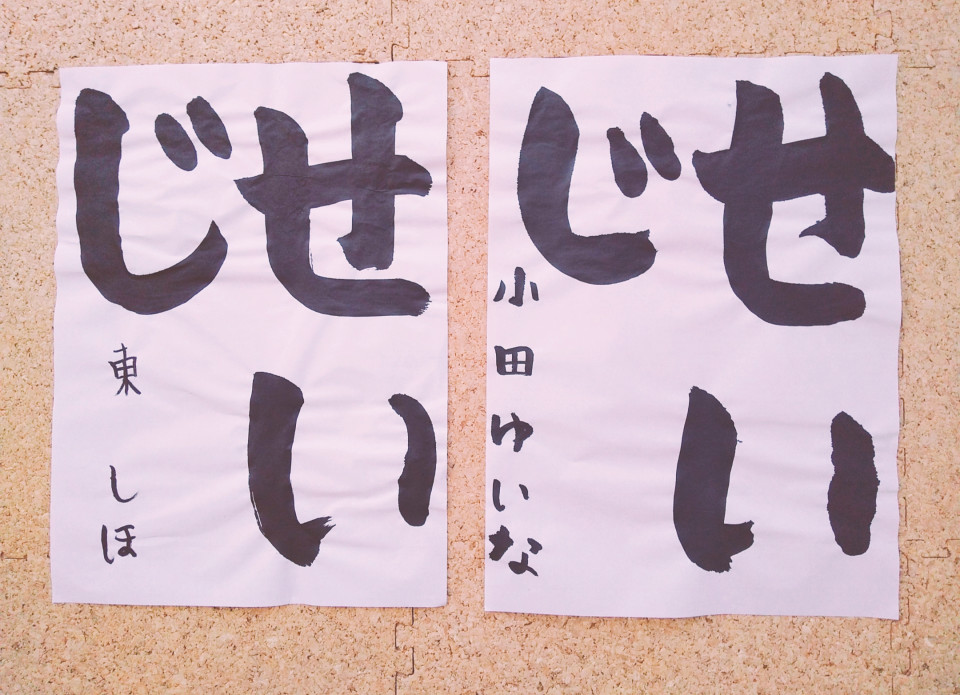 せい
じ
小田ゆいな
せい
じ
東 しほ